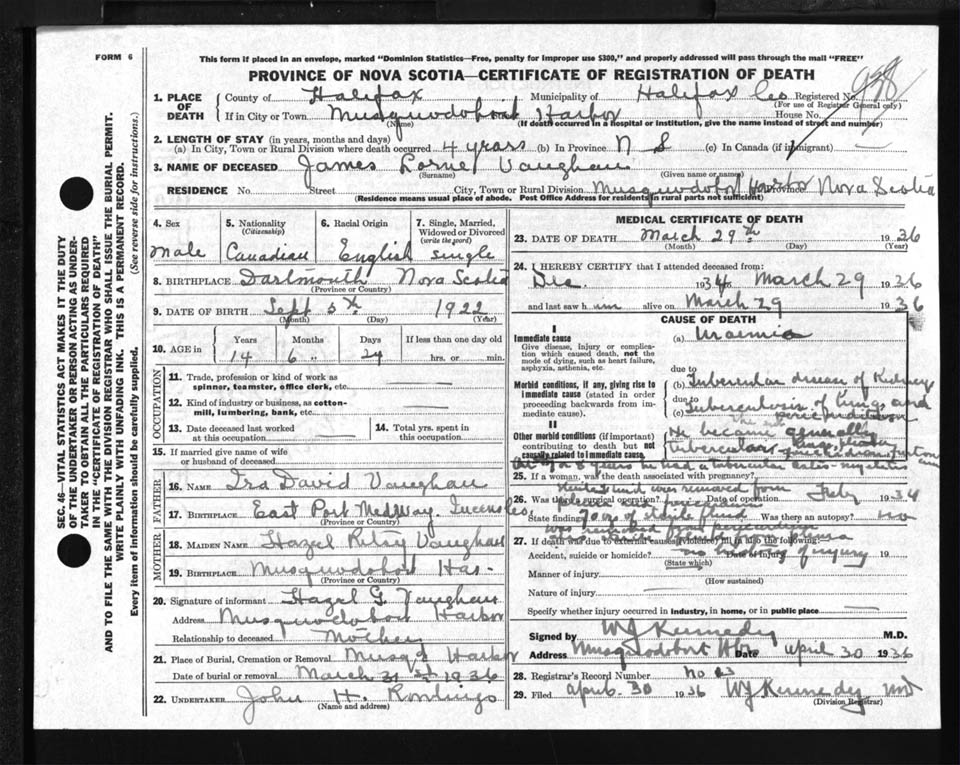 FORM 6
This form if placed in an envelope, marked "Dominion Statistics—Free, penalty for improper use $300," and properly addressed will pass through the mail "FREE"
PROVINCE OF NOVA SCOTIA—CERTIFICATE OF REGISTRATION OF DEATH
938
1. PLACE OF DEATH
County of Halifax Municipality of Halifax Co Registered No.
(For use of Registrar General only)
If in City or Town Musquodoboit Harbor House No.
(Name) (If death occurred in a hospital or institution, give the name instead of street and number)
2. LENGTH OF STAY (in years, months and days)
(a) In City, Town or Rural Division where death occurred 4 years (b) In Province N S (c) In Canada (if immigrant) —
3. NAME OF DECEASED James Lorne Vaughan
(Surname) (Given name or names)
RESIDENCE No. Street City, Town or Rural Division Musquodoboit Harbor Province Nova Scotia
(Residence means usual place of abode. Post Office Address for residents in rural parts not sufficient)
SEC. 46—VITAL STATISTICS ACT MAKES IT THE DUTY
OF THE UNDERTAKER OR PERSON ACTING AS UNDER-
TAKER TO OBTAIN ALL THE PARTICULARS REQUIRED
IN THE "CERTIFICATE OF REGISTRATION OF DEATH"
AND TO FILE THE SAME WITH THE DIVISION REGISTRAR WHO SHALL ISSUE THE BURIAL PERMIT.
WRITE PLAINLY WITH UNFADING INK. THIS IS A PERMANENT RECORD.
Every item of information should be carefully supplied. (See reverse side for instructions.)
4. Sex
Male
5. Nationality
(Citizenship)
Canadian
6. Racial Origin
English
7. Single, Married,
Widowed or Divorced
(write the word)
single
8. BIRTHPLACE Dartmouth Nova Scotia
(Province or Country)
9. DATE OF BIRTH Sept 5th 1922
(Month) (Day) (Year)
10. AGE in
Years Months Days If less than one day old
14 6 24 hrs. or min.
OCCUPATION
11. Trade, profession or kind of work as
spinner, teamster, office clerk, etc. —
12. Kind of industry or business, as cotton-
mill, lumbering, bank, etc. —
13. Date deceased last worked
at this occupation —
14. Total yrs. spent in
this occupation
15. If married give name of wife
or husband of deceased
FATHER
16. NAME Ira David Vaughan
17. BIRTHPLACE East Port Medway. Queens Co.
(Province or Country)
MOTHER
18. MAIDEN NAME Hazel Vaughan
19. BIRTHPLACE Musquodoboit Har-
(Province or Country)
20. Signature of informant Hazel G. Vaughan
Address Musquodoboit Harbor
Relationship to deceased Mother
21. Place of Burial, Cremation or Removal Musq'd Harbor
Date of burial or removal March 31st 1936
22. UNDERTAKER John H.
(Name and address)
MEDICAL CERTIFICATE OF DEATH
23. DATE OF DEATH March 29th 1936
(Month) (Day) (Year)
24. I HEREBY CERTIFY that I attended deceased from:
Dec. 1934 to March 29 1936
and last saw him alive on March 29 1936
CAUSE OF DEATH
I
Immediate cause
Give disease, injury or complica-
tion which caused death, not the
mode of dying, such as heart failure,
asphyxia, asthenia, etc.
(a) Uraemia
due to
Morbid conditions, if any, giving rise to
immediate cause (stated in order
proceeding backwards from im-
mediate cause).
(b) Tubercular disease of Kidney
due to
(c) Tuberculosis of lungs and
II
Other morbid conditions (if important)
contributing to death but not
causally related to immediate cause.
He became generally
tubercular
At 7 or 8 years he had a tubercular osteo-myelitis
25. If a woman, was the death associated with pregnancy?
fluid was removed from
26. Was there a surgical operation? Date of operation Feby 1934
State finding 70 oz of sterile fluid Was there an autopsy? no
was removed from pericardium
27. If death was due to external causes (violence) fill in also the following:
Accident, suicide or homicide? Date of injury 19
no history of injury
(State which)
Manner of injury
(How sustained)
Nature of injury —
Specify whether injury occurred in industry, in home, or in public place —
Signed by WJ Kennedy M.D.
Address Musquodoboit Hbr Date April 30 1936
28. Registrar's Record Number No
29. Filed April 30 1936 WJ Kennedy MD
(Division Registrar)